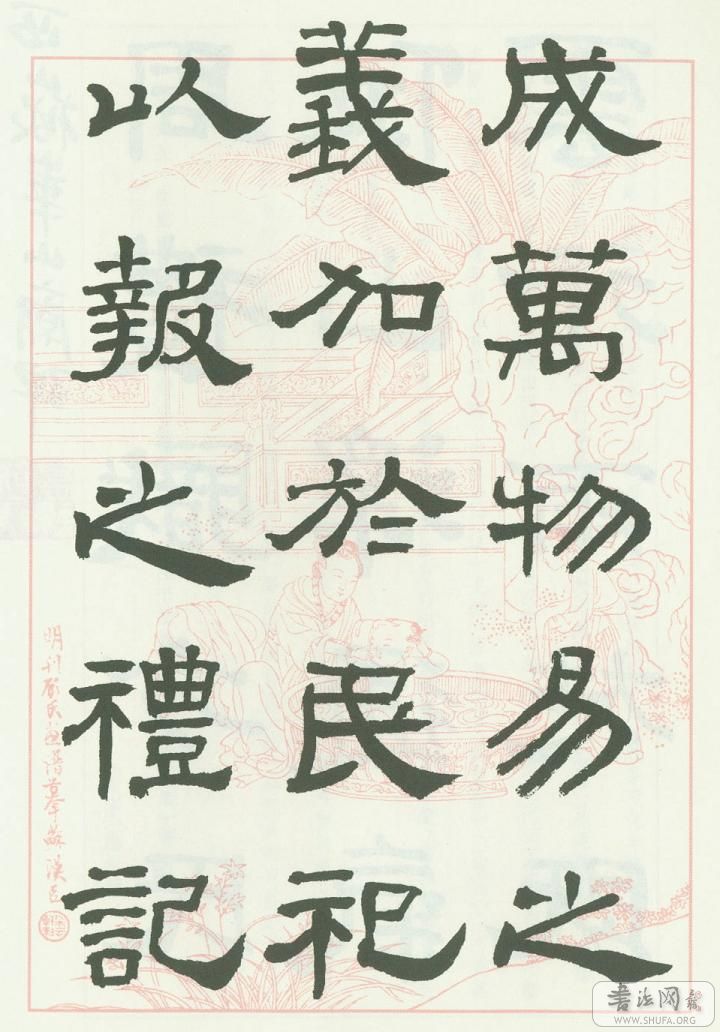 成萬物易之
義加於民祀
以報之禮記
書法网
WWW.SHUFA.ORG